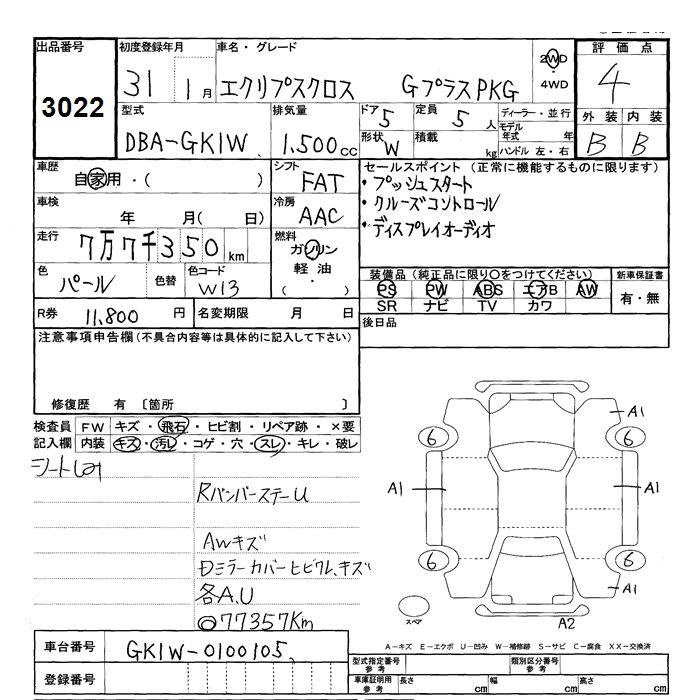 出品番号 3022
初度登録年月 31 1月
車名・グレード エクリプスクロス GプラスPKG
2WD・4WD
評価点 4
型式 DBA-GK1W
排気量 1.500cc
ドア 5 定員 5人
形状 W 積載 kg
ディーラー・並行
モデル年式 年
ハンドル 左・右
外装 内装
B B
車歴 自家用・( )
シフト FAT
車検 年 月( 日)
冷房 AAC
走行 7万7千350km
燃料 ガソリン
軽油・( )
色 パール 色替 色コード W13
R券 11,800円 名変期限 月 日
セールスポイント(正常に機能するものに限ります)
・プッシュスタート
・クルーズコントロール
・ディスプレイオーディオ
装備品(純正品に限り○をつけてください) 新車保証書
PS PW ABS エアB AW 有・無
SR ナビ TV カワ
後日品
注意事項申告欄(不具合内容等は具体的に記入して下さい)
修復歴 有 〔箇所 〕
検査員 FW キズ・飛石・ヒビ割・リペア跡・×要
記入欄 内装 キズ・汚レ・コゲ・穴・スレ・キレ・破レ
RバンパーステーU
AWキズ
ミラーカバーヒビワレ、キズ
各A.U
◎77357Km
A1
6 6
A1 A1
6 6
A1
スペア
A2
A-キズ E-エクボ U-凹み W-補修跡 S-サビ C-腐食 XX-交換済
車台番号 GK1W-0100105
登録番号
型式指定番号 参考 類別区分番号 参考
車庫証明用 参考 長さ cm 幅 cm 高さ cm